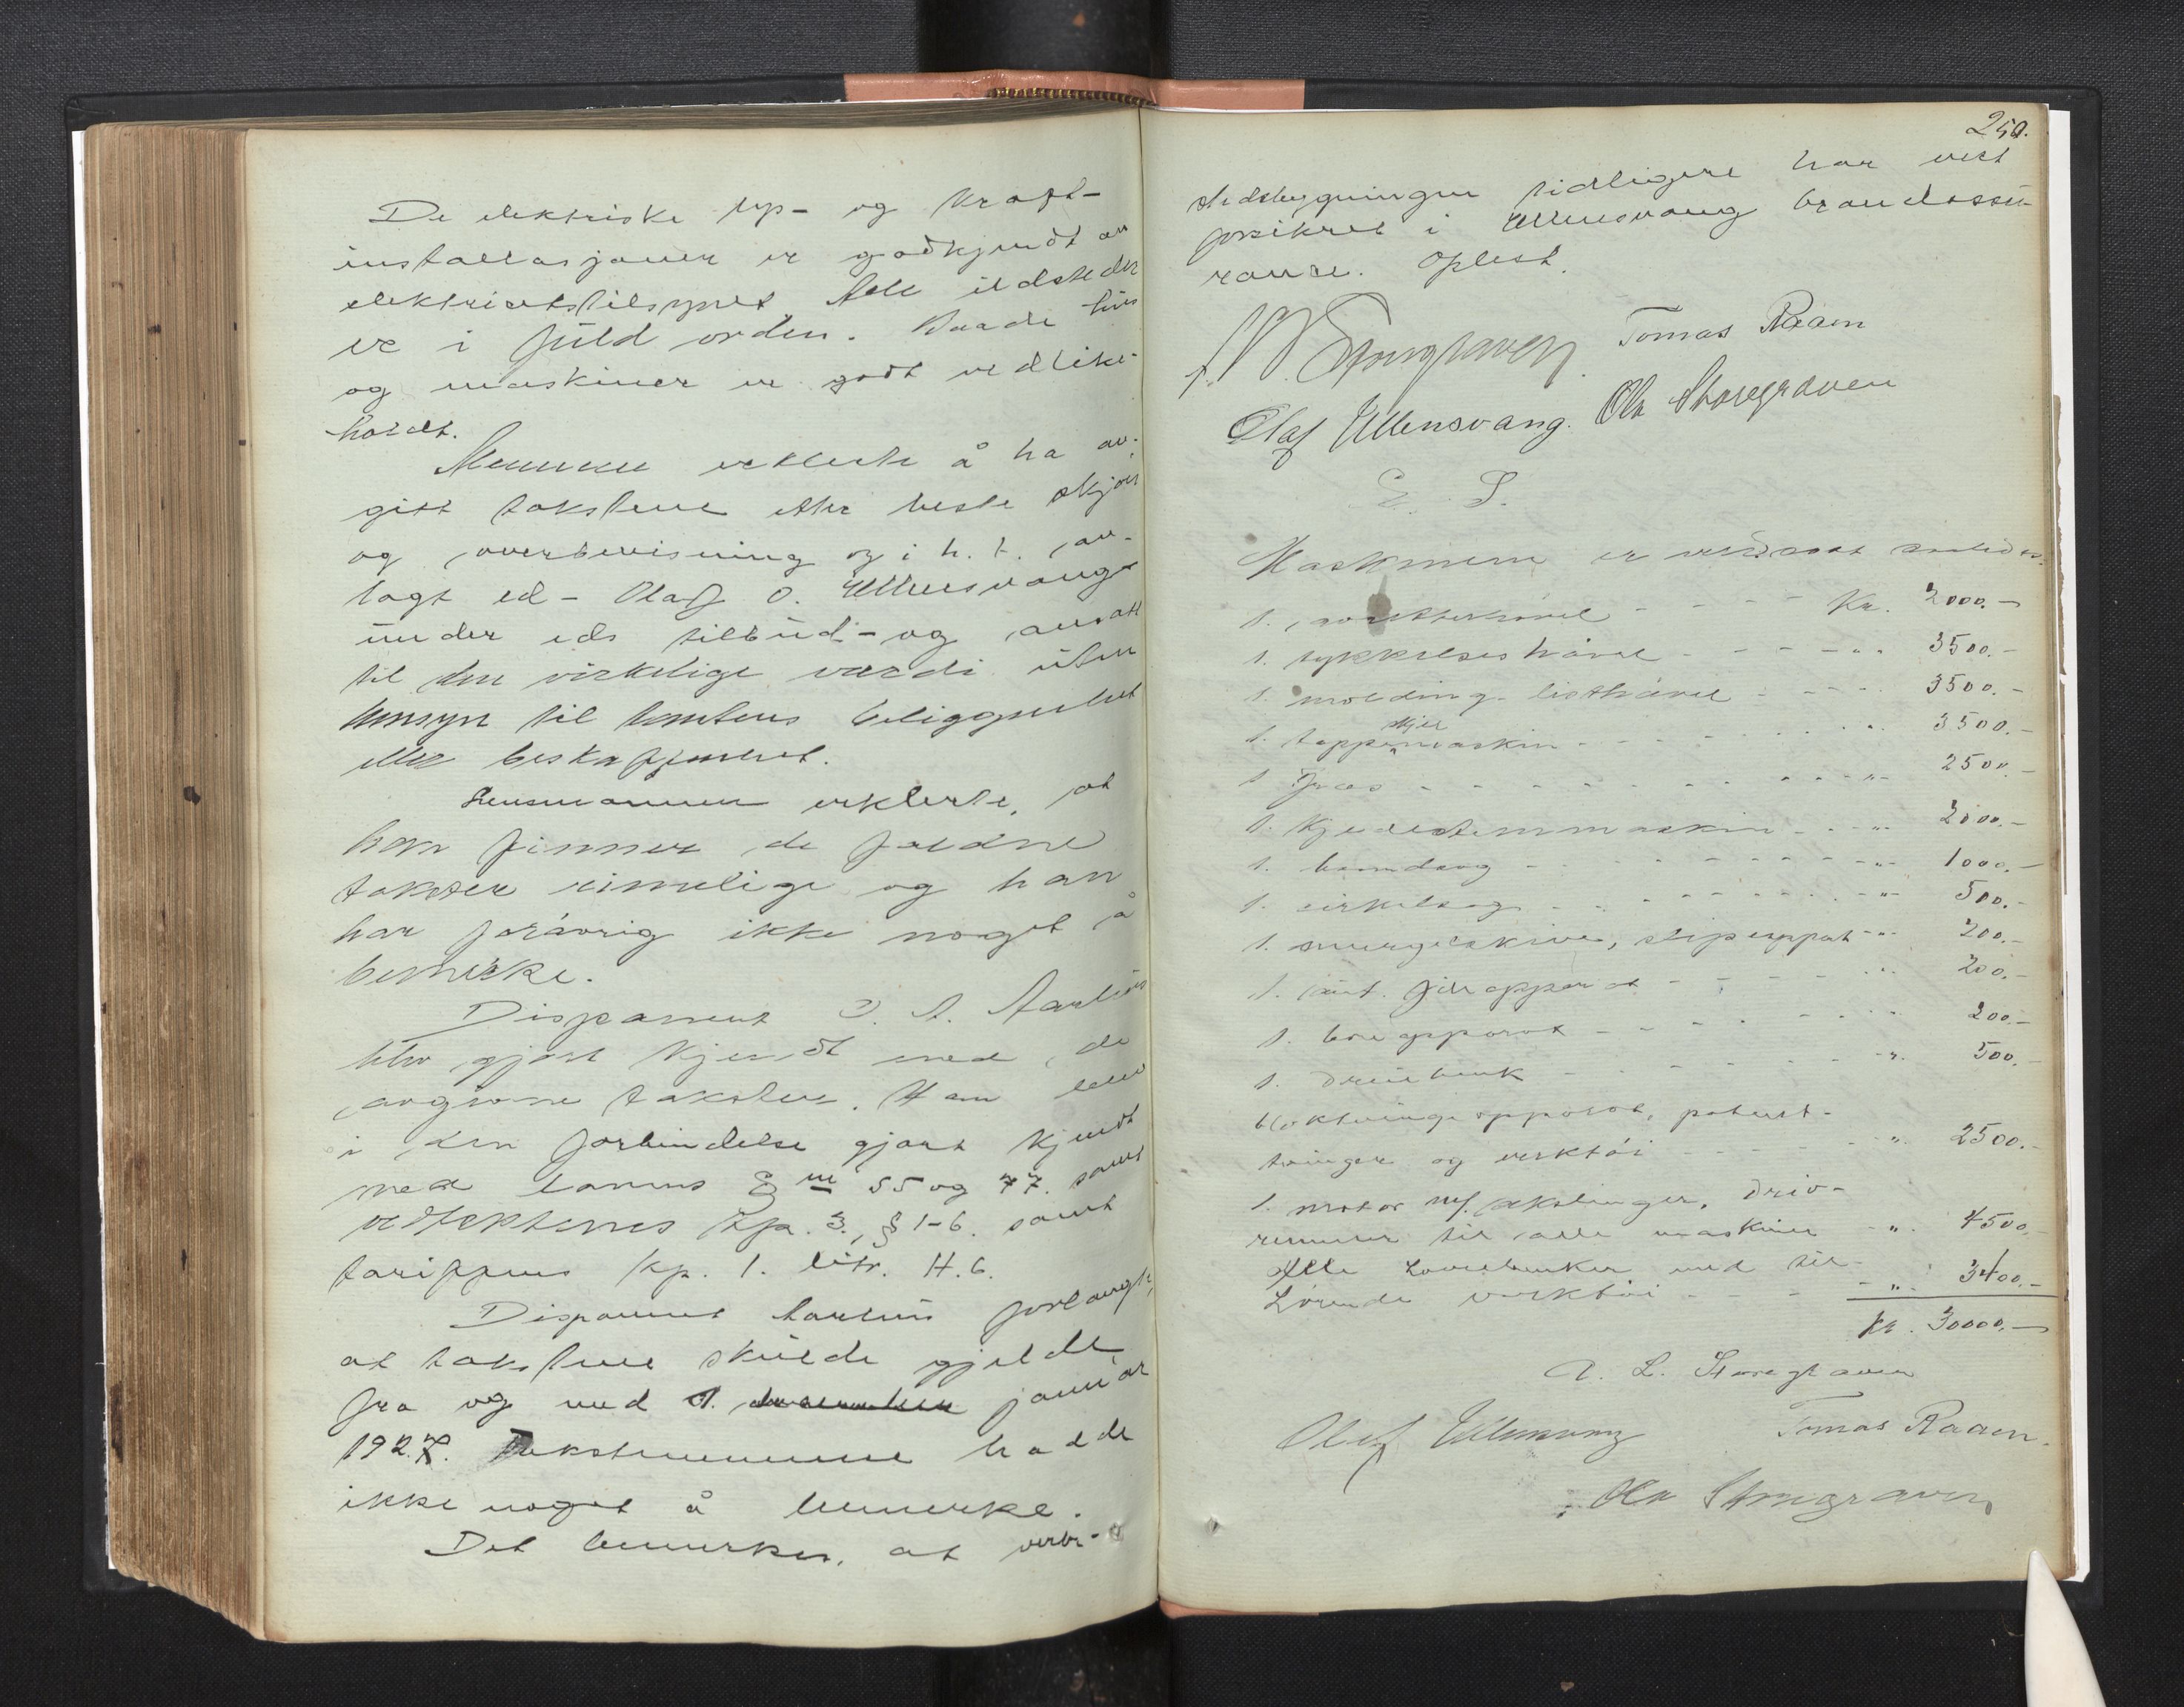 De elektriske lys- og kraft-
installasjoner er godkjendt av
elektricitetstilsynet. Alle ildsteder
er i fuld orden. Baade hus
og maskiner er godt vedlike-
holdt.
Mennene erklerte å ha av-
gitt takstene etter beste skjøn
og overbevisning og i h. t. av-
lagt ed - Olaf O. Ullensvang
under eds tilbud - og ansatt
til den virkelige verdi uten
hensyn til tomtens beliggenhet
eller beskaffenhet.
Lensmannen erklerte, at
han finner de faldne
takster rimelige og han
har forøvrig ikke noget å
bemerke.
Disponent A. Aarhus
blev gjort kjendt med de
avgivne takster. Han blev
i den forbindelse gjort kjendt
med lovens §§ 55 og 77. samt
vedtektenes kp. 3, § 1-6. samt
tariffens kp. 1. litr. H.6.
Disponent Aarhus forlangte,
at takstene skulde gjelde
fra og med 1. januar
1927. Takstmennene hadde
ikke noget å bemerke.
Det bemerkes, at verk-
250.
stedsbygningen tidligere har vert
forsikret i Ullensvang brandassu-
rance. Oplest.
Storegraven Tomas Raaen
Olaf Ullensvang. Ola Storegraven
E. S.
Maskinene er verdsat saaledes:
1. avretterhøvel - - - - Kr. 2000.-
1. tykkelseshøvel - - - - " 3500.-
1. molding listhøvel - - - - 3500.-
1. tappeskjermaskin - - - - " 3500.-
1 Fres - - - - " 2500.-
1. kjedestemmaskin - - - " 2000.-
1. bandsag - - - - " 1000.-
1. sirkelsag - - - - " 500.-
1. smergelskive, slipeapparat - " 200.-
1. aut. fileapparat - - - - " 200.-
1. boreapparat - - - - " 200.-
1. dreiebenk - - - - " 500.-
apparat, patent-
tvinger og verktøi - - - " 2500.-
1. motor m/ akslinger, driv-
remmer til alle maskiner - " 4500.-
Alle høvelbenker med til-
hørende verktøi - - - " 3400.-
Kr. 30000.-
A. L. Storegraven
Olaf Ullensvang Tomas Raaen.
Ola Storegraven